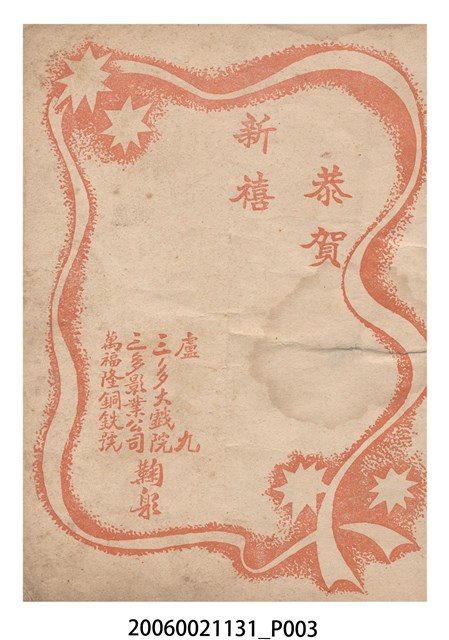 恭賀
新禧
盧九
三多大戲院
三多影業公司
萬福隆銅鉄號
鞠躬
20060021131_P003